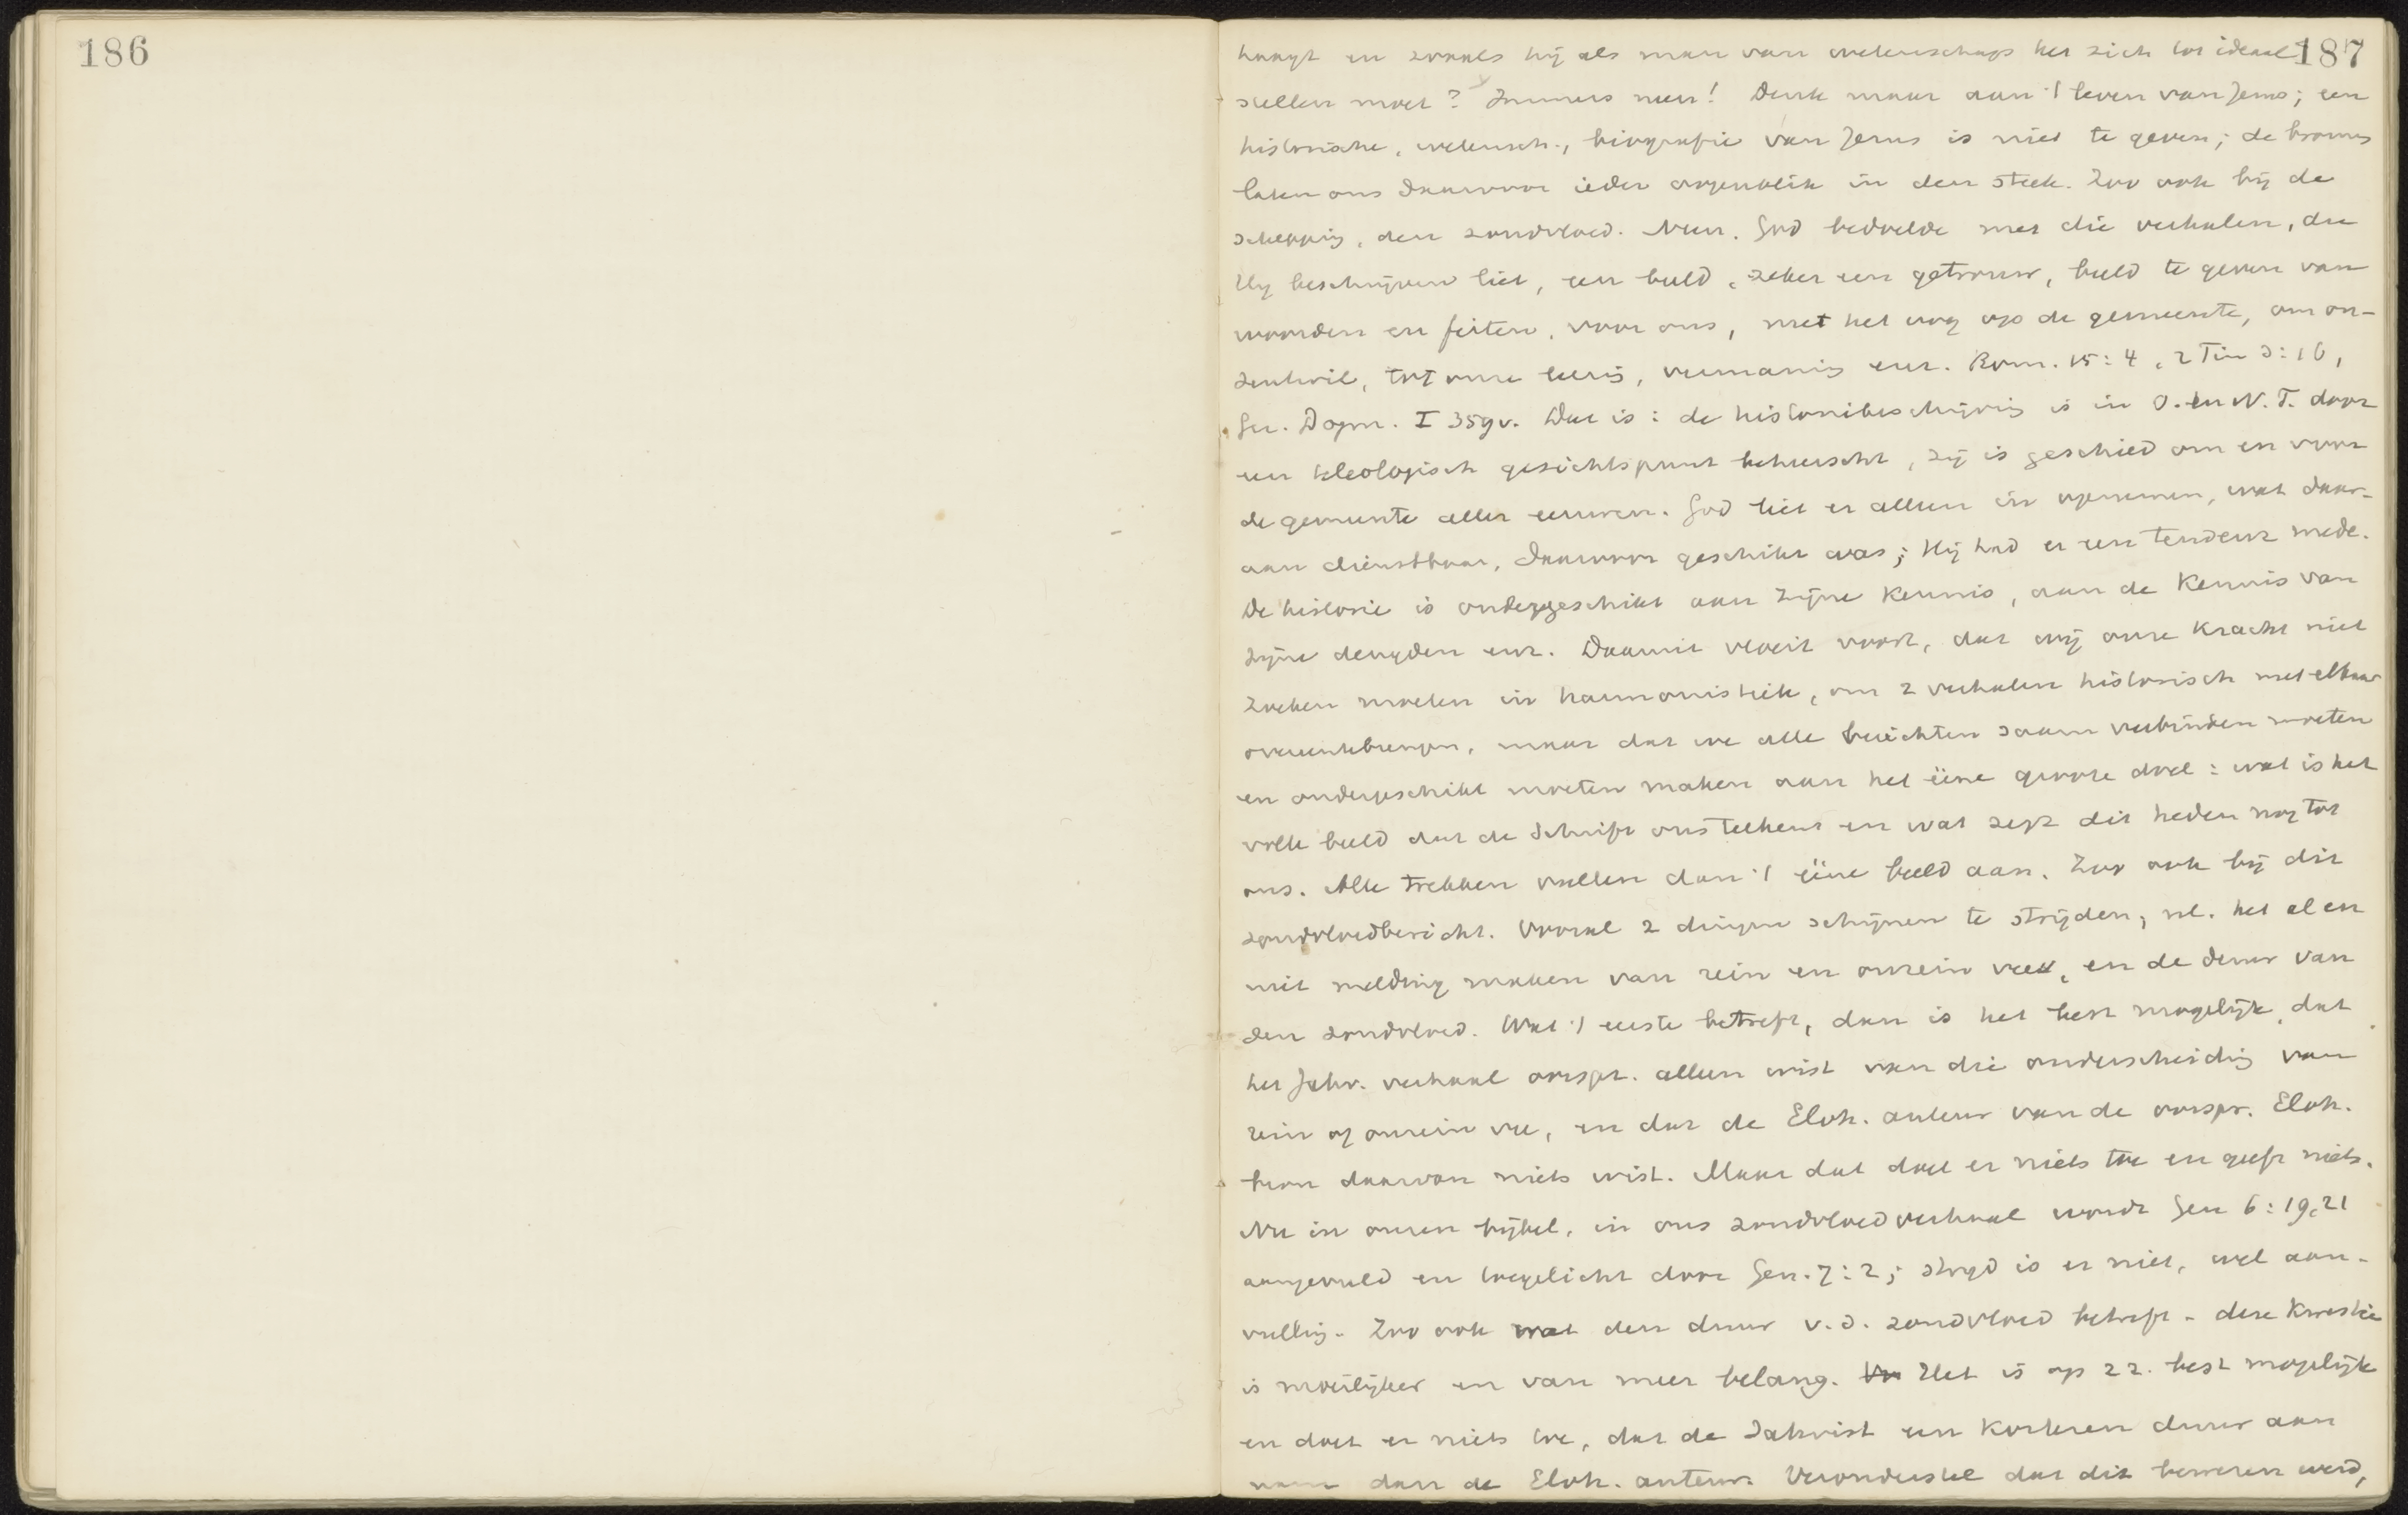 186
187
hangt en zooals hij als man van wetenschap het zich tot ideaal
stellen moet? Immers neen! Denk maar aan 't leven van Jezus; een
historische, wetensch., biografie van Jezus is niet te geven; de bronnen
laten ons daarvoor ieder oogenblik in den steek. Zoo ook bij de
schepping, den zondvloed. Neen. God bedoelde met die verhalen, die
Hij beschrijven liet, een beeld, zeker een getrouw, beeld te geven van
woorden en feiten, voor ons, met het oog op de gemeente, om on-
zentwil, tot onze leering, vermaning enz. Rom. 15:4, 2 Tim 3:16,
Ger. Dogm. I 359v. Dat is: de historiebeschrijving is in O. en N. T. door
een teleologisch gezichtspunt beheerscht, zij is geschied om en voor
de gemeente aller eeuwen. God liet er alleen in opnemen, wat daar-
aan dienstbaar, daarvoor geschikt was; Hij had er een tendenz mede.
De historie is ondergeschikt aan Zijne kennis, aan de kennis van
Zijne deugden enz. Daaruit vloeit voort, dat wij onze kracht niet
zoeken moeten in harmonistiek, om 2 verhalen historisch met elkaar
overeentebrengen, maar dat we alle berichten saam verbinden moeten
en ondergeschikt moeten maken aan het ééne groote doel: wat is het
volle beeld dat de Schrift ons teekent en wat zegt dit heden nog tot
ons. Alle trekken vullen dan 't ééne beeld aan. Zoo ook bij dit
zondvloedbericht. Vooral 2 dingen schijnen te strijden, nl. het al en
niet melding maken van rein en onrein vee, en de duur van
den zondvloed. Wat 't eerste betreft, dan is het best mogelijk, dat
het Jahv. verhaal oorspr. alleen wist van die onderscheiding van
rein of onrein vee, en dat de Eloh. auteur van de oorspr. Eloh.
bron daarvan niets wist. Maar dat doet er niets toe en geeft niets.
Nu in onzen bijbel, in ons zondvloedverhaal wordt Gen 6:19,21
aangevuld en toegelicht door Gen. 7:2; strijd is er niet, wel aan-
vulling. Zoo ook wat den duur v. d. zondvloed betreft - deze kwestie
is moeilijker en van meer belang. Het is op zz. best mogelijk
en doet er niets toe, dat de Jahvist een korteren duur aan
nam dan de Eloh. auteur. Veronderstel dat dit bewezen werd,